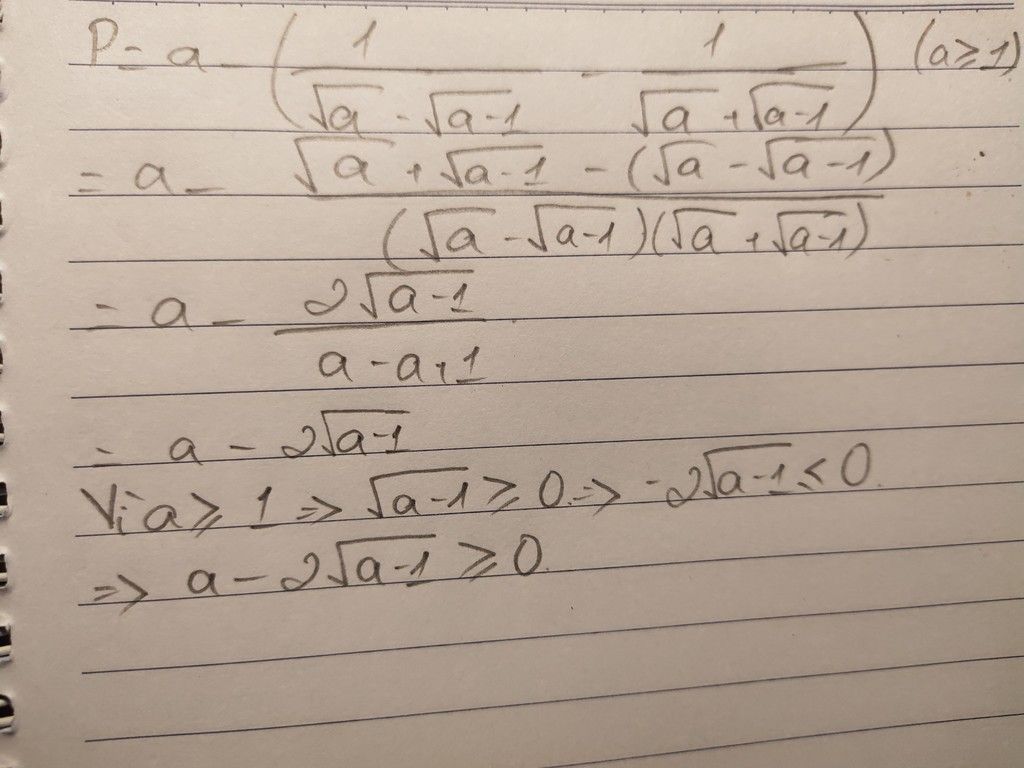 P = a - (1/(√a - √(a-1)) - 1/(√a + √(a-1))) (a ≥ 1)
= a - (√a + √(a-1) - (√a - √(a-1)))/((√a - √(a-1))(√a + √(a-1)))
= a - 2√(a-1)/(a - a + 1)
= a - 2√(a-1)
Vì a ≥ 1 => √(a-1) ≥ 0 => -2√(a-1) ≤ 0.
=> a - 2√(a-1) ≥ 0.